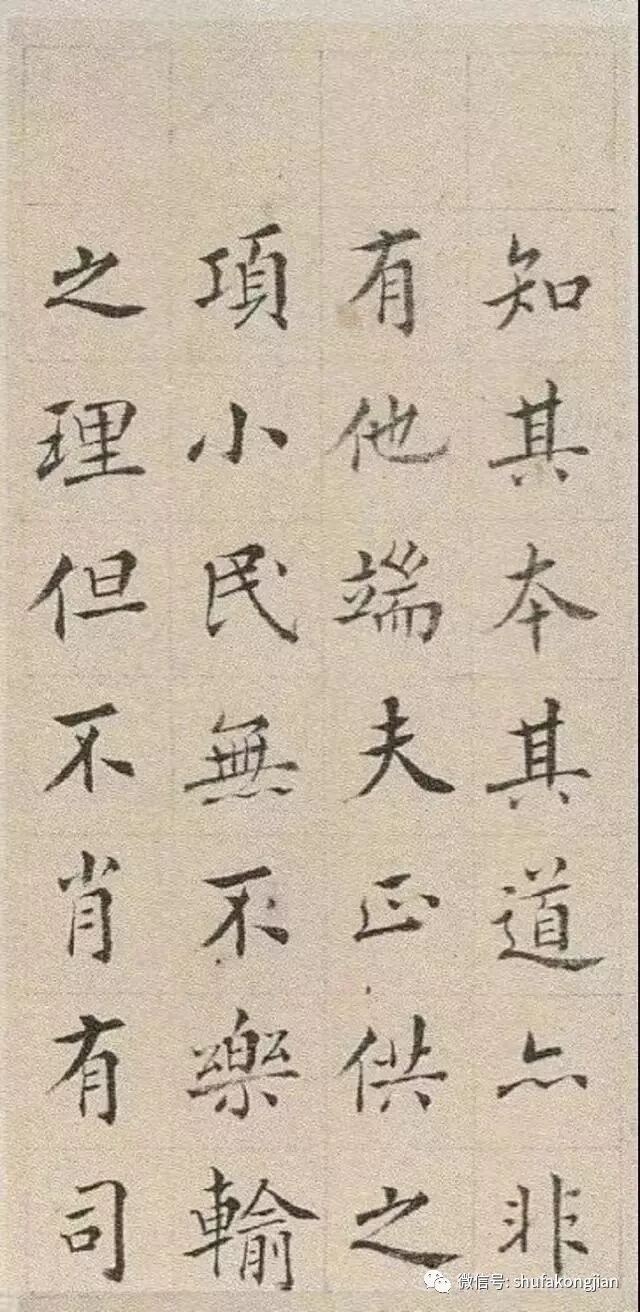 知其本其道亦非
有他端夫正供之
項小民無不樂輸
之理但不肖有司
微信号: shufakongjian